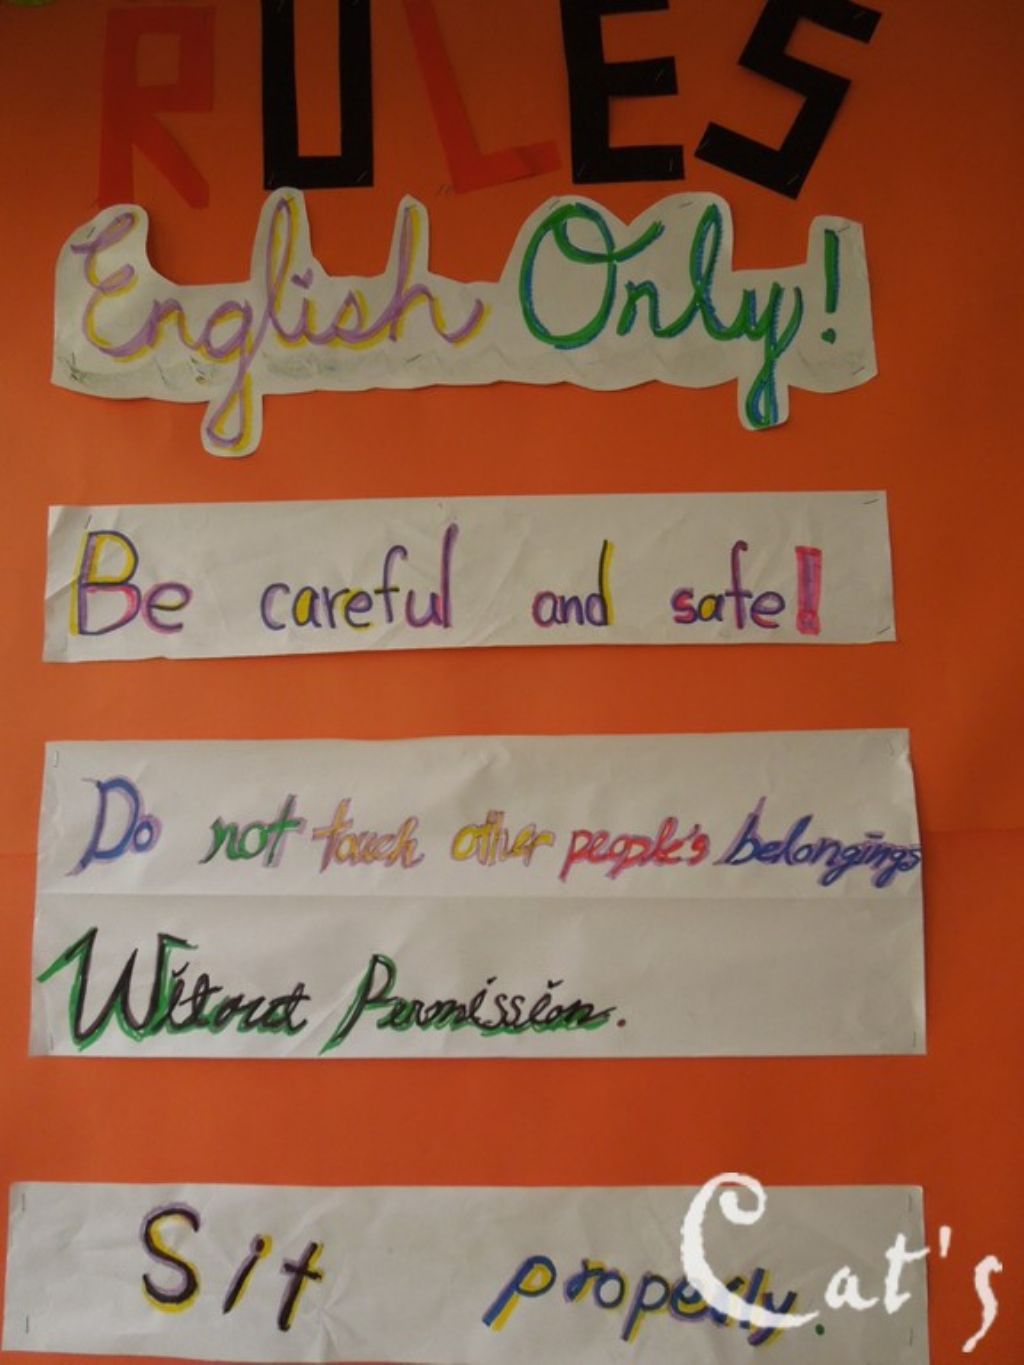 RULES
English Only!
Be careful and safe!
Do not touch other people's belongings
Witout Permission.
Sit properly.
Cat's